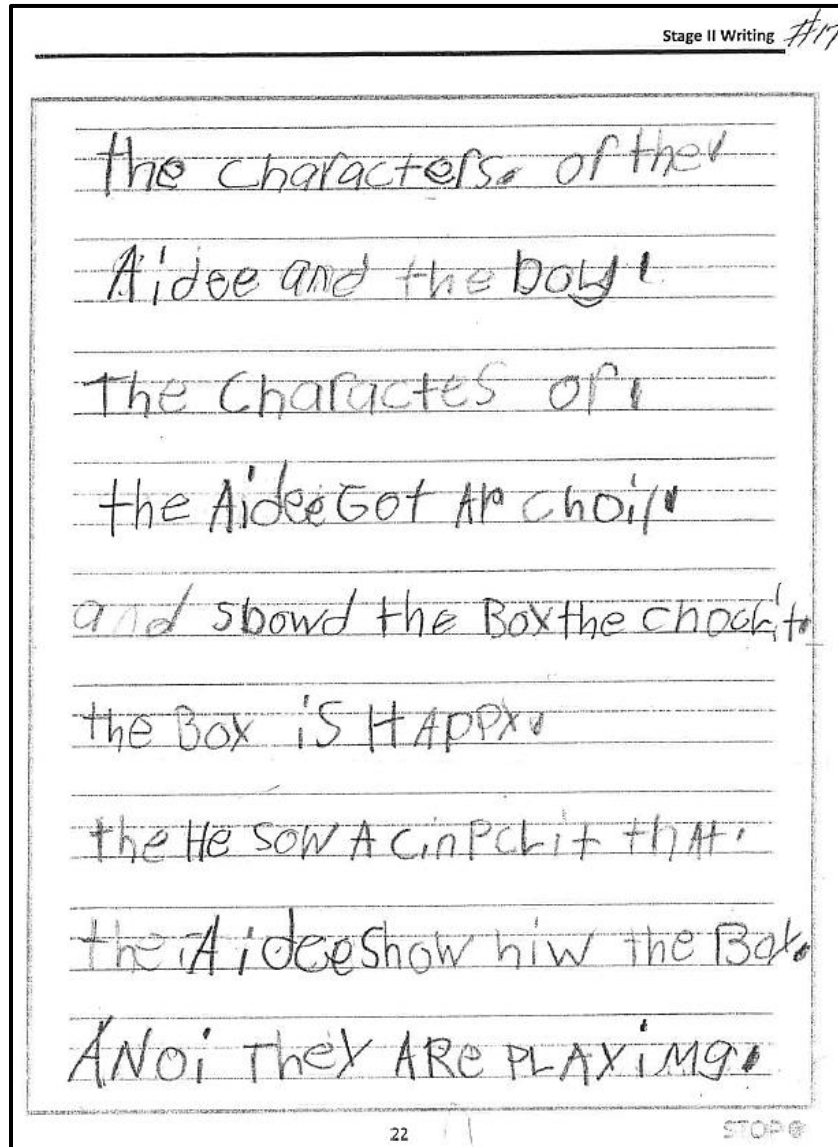 Stage II Writing #17
the characters. of the
Aidee and the boy
The Charactes of
the Aidee Got An choir
and showd the Box the choch to
the Box is HAppy
the He sow A cinPcLit thAt.
the Aidee Show hiw the Box.
ANoi They ARe PLAYiMg.
22
STOP